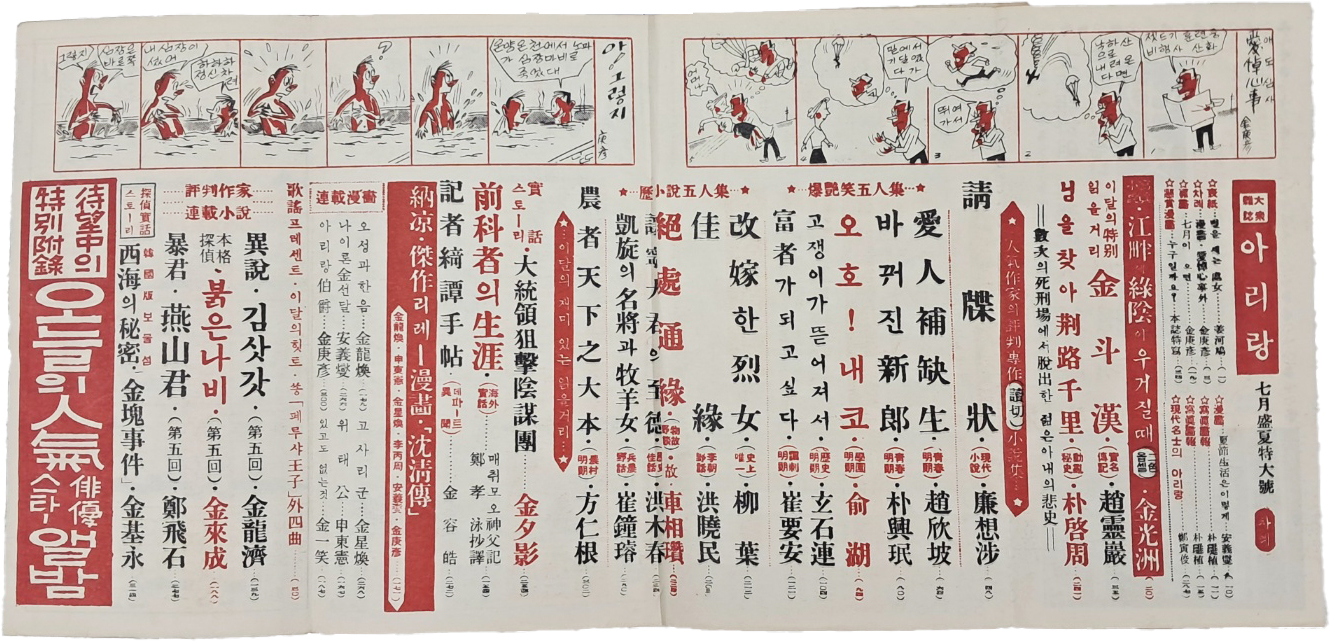 哀悼心事
金庚彦
낙하산
으로
내려온
다면
뛰여
가서
밑에서
기달였
다가
아! 그렇지
庚彦
온양온천에서 노파
가 심장마비로
죽었대
하하하
정신차려
내 심장이
섰어
심장은
바로쪽
그렇지
大衆
雜誌
아리랑
七月盛夏特大號
차례
江畔에 綠陰이 우거질때
金光洲
이달의特別
읽을거리
金斗漢
(實名
傳記)
趙靈巖
님을찾아荆路千里
(動亂
秘史)
朴啓周
──數次의死刑場에서脫出한 젊은아내의悲史──
人氣作家의評判專作(讀切)小說集
請牒狀
(現代
小說)
廉想涉
愛人補缺生
(靑春
明朗)
趙欣坡
바꾸진新郎
(靑春
明朗)
朴興珉
오호!내코
(學園
明朗)
俞湖
고쟁이가뜯어져서
(歷史
明朗)
玄石連
富者가되고싶다
(諷刺
明朗)
崔要安
★爆艶笑五人集★
改嫁한烈女
(史上
唯一)
柳葉
佳緣
(李朝
野話)
洪曉民
★歷小說五人集★
絕處通緣
故車相瓚
洪木春
凱旋의名將과牧羊女
崔鐘瑢
★…이달의재미있는읽을거리…★
農者天下之大本
(農村
明朗)
方仁根
實話
스토ー리
大統領狙擊陰謀團
金夕影
前科者의生涯
(海外
實話)
매취모오神父記
鄭孝泳抄譯
記者綺譚手帖
(데파ー트
異聞)
金容皓
納凉·傑作리레ー漫畵·「沈淸傳」
金龍煥·申東憲·金星煥·李丙周·安義燮·金庚彦
連載漫畵
오성과한음……金龍煥
고사리군……金星煥
나이론金선달……安義燮
위태公……申東憲
아리랑伯爵……金庚彦
있고도없는것……金一笑
歌謠프레센트·이달의힛트·쏭「페루샤王子」外四曲
評判作家
連載小說
異說·김삿갓
(第五回)
金龍濟
本格
探偵
붉은나비
(第五回)
金來成
暴君·燕山君
(第五回)
鄭飛石
探偵實話
스토ー리
韓國版보물섬
西海의秘密·「金塊事件」
金基永
待望中의
特別附錄
오늘의人氣스타ー
俳優
앨밤